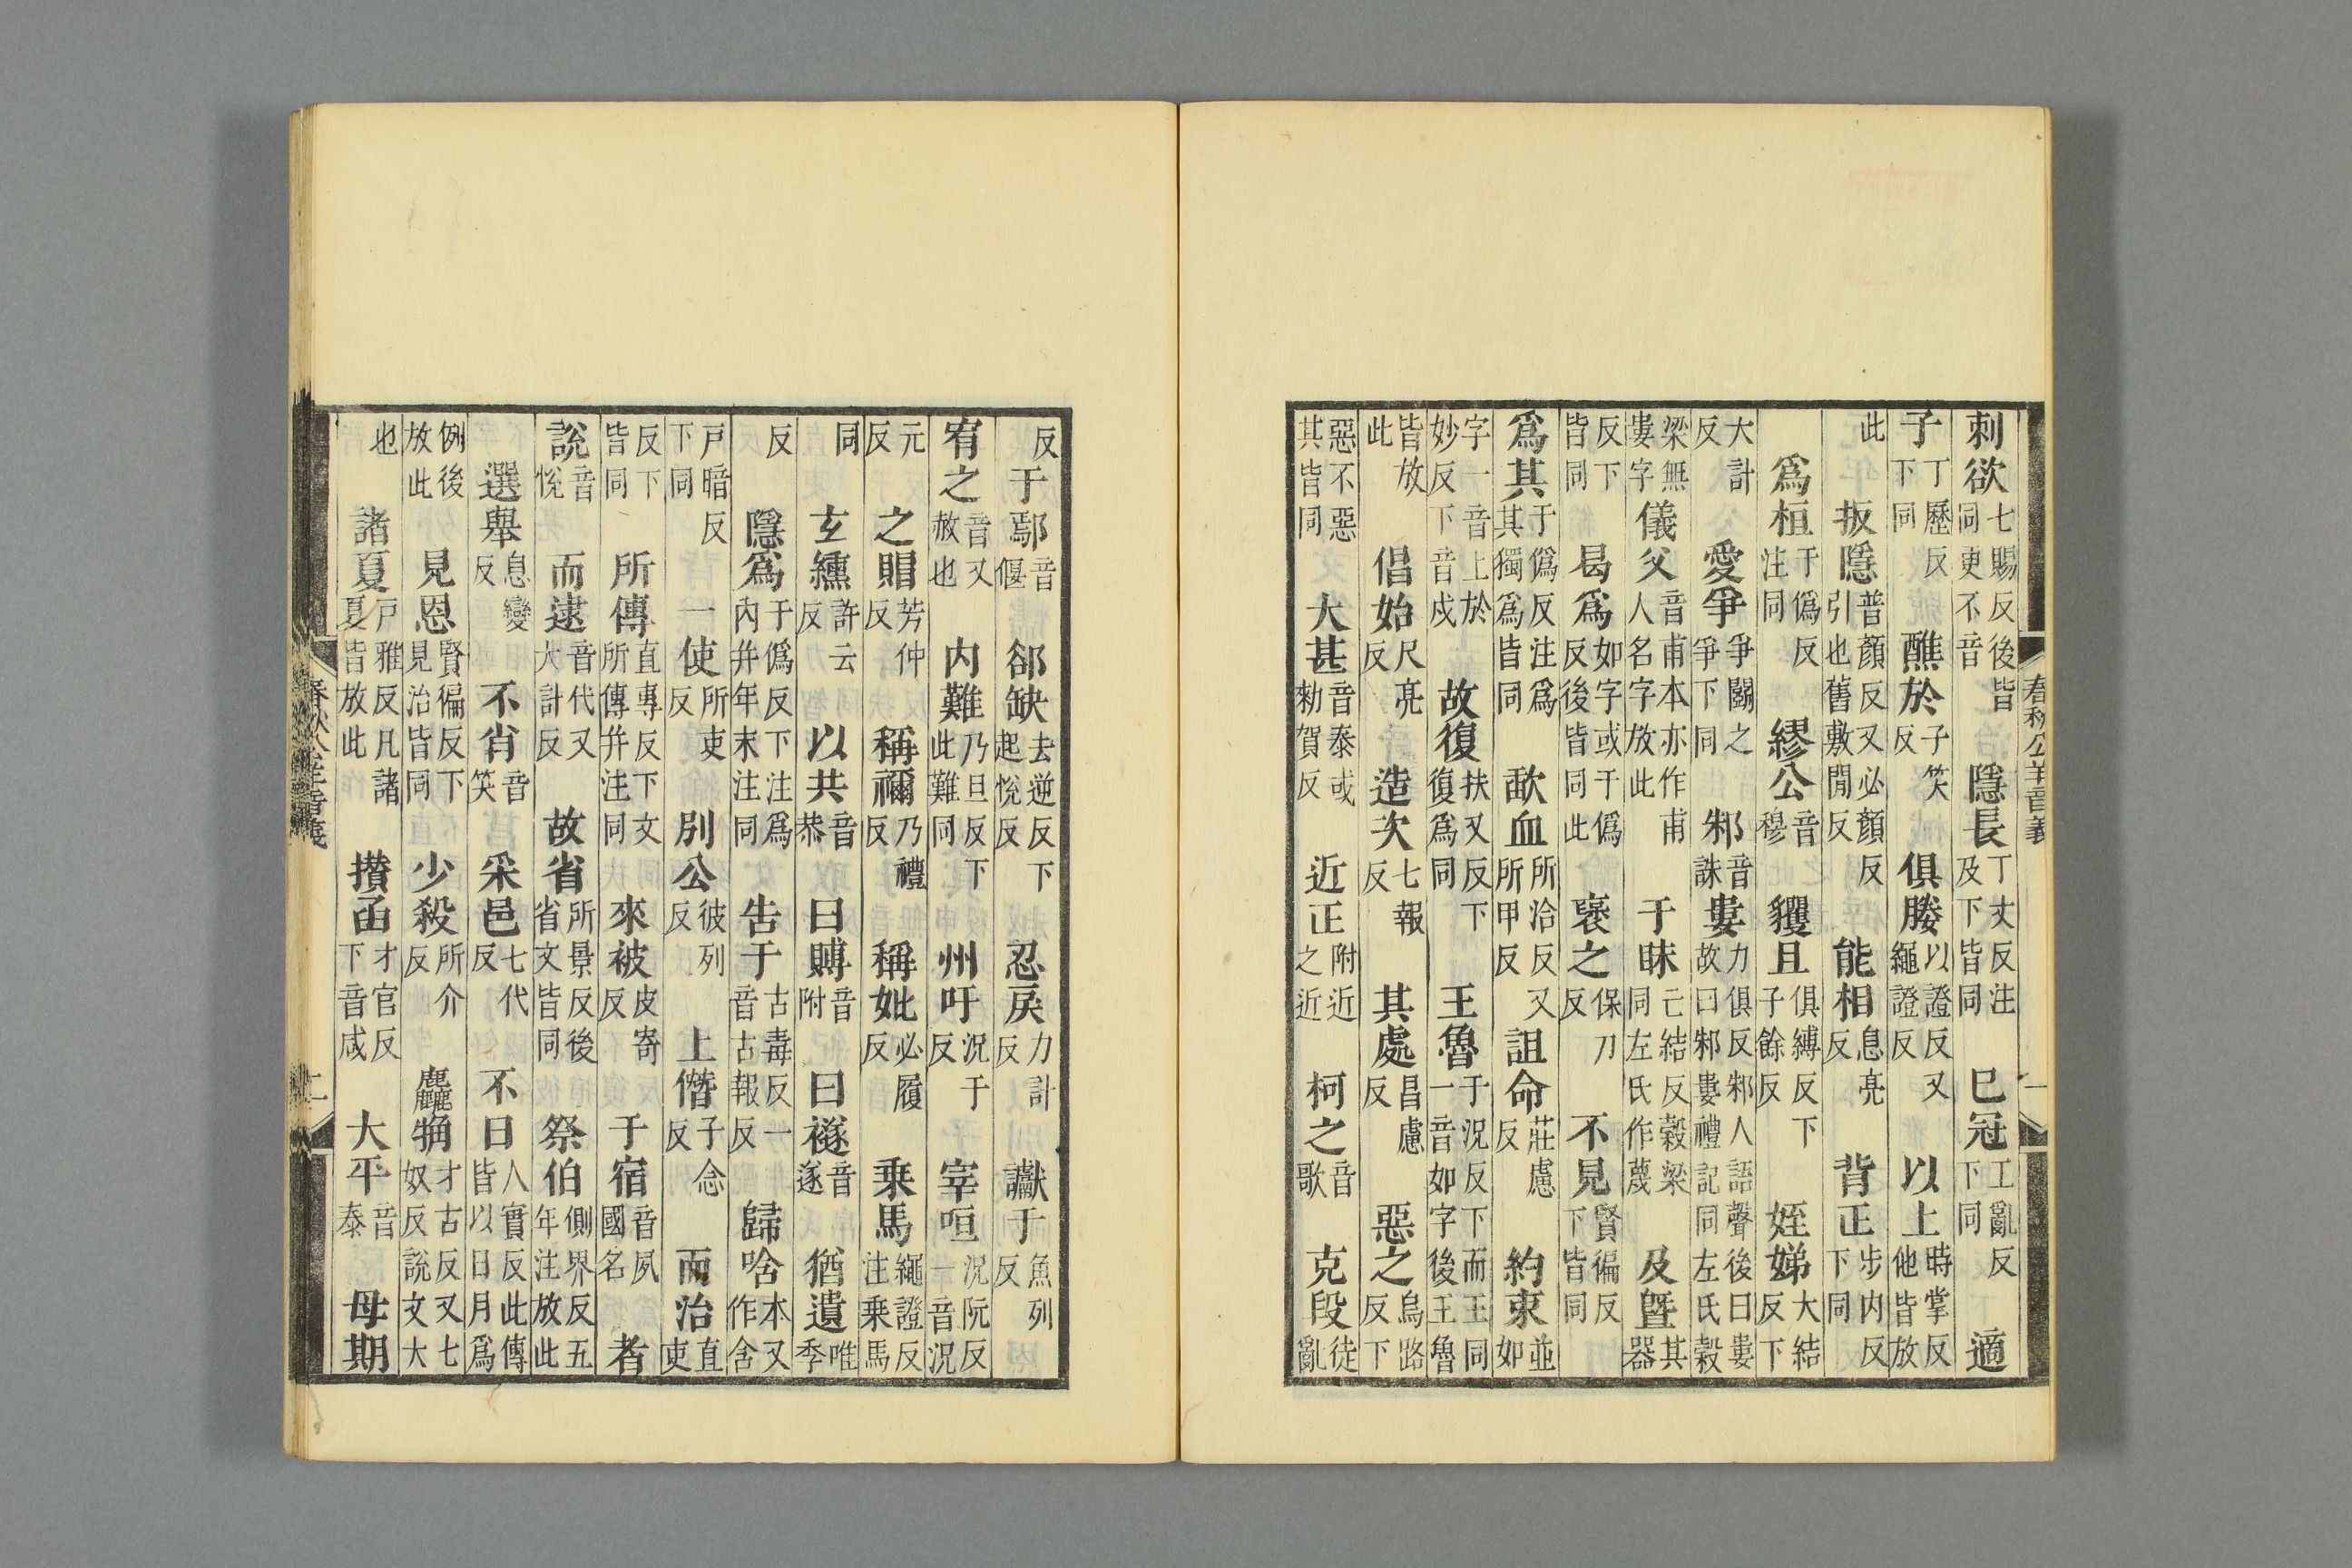 春秋公羊音義 一
刺欲七賜反後皆同更不音 隱長丁丈反注及下皆同 已冠工亂反下同 適
子丁歷反下同 醮於子笑反 俱媵以證反又繩證反 以上時掌反他皆放
此 扳隱普顏反又必顏反引也舊敷閒反 能相息亮反 背正步内反下同
爲桓于僞反注同 繆公音穆 貜且俱縛反下子餘反 姪娣大結反下
大計反 愛爭爭鬭之爭下同 邾音誅婁力俱反邾人語聲後曰婁故曰邾婁禮記同左氏穀
梁無婁字 儀父音甫本亦作甫人名字放此 于眛亡結反穀梁同左氏作蔑 及曁其器
反下皆同 曷爲如字或于僞反後皆同此 襃之保刀反 不見賢徧反下皆同
爲其于僞反注爲其獨爲皆同 歃血所洽反又所甲反 詛命莊慮反 約束並如
字一音上於妙反下音戍 故復扶又反下復爲同 王魯于況反下而王同一音如字後王魯
皆放此 倡始尺亮反 造次七報反 其處昌慮反 惡之烏路反下
惡不惡其皆同 大甚音泰或勑賀反 近正附近之近 柯之音歌 克段徒亂
反 于鄢音偃 郤缺去逆反下起悅反 忍戾力計反 讞于魚列反
宥之音又赦也 内難乃旦反下此難同 州吁況于反 宰咺況阮反一音況
元反 之賵芳仲反 稱禰乃禮反 稱妣必履反 乗馬繩證反注乗馬
同 玄纁許云反 以共音恭 曰賻音附 曰襚音遂 猶遺唯季
反 隱爲于僞反下注爲内并年末注同 告于古毒反一音古報反 歸唅本又作含
戶暗反下同 一使所吏反 別公彼列反 上僭子念反 而治直吏
反下皆同 所傳直專反下文所傳并注同 來被皮寄反 于宿音夙國名 者
說音悅 而逮音代又大計反 故省所景反後省文皆同 祭伯側界反五年注放此
選舉息變反 不肖音笑 采邑七代反 不日人實反此傳皆以日月爲
例後放此 見恩賢徧反下見治皆同 少殺所介反 麤觕才古反又七奴反說文大
也 諸夏戶雅反凡諸夏皆放此 攢函才官反下音咸 大平音泰 母期
春秋公羊音義 二